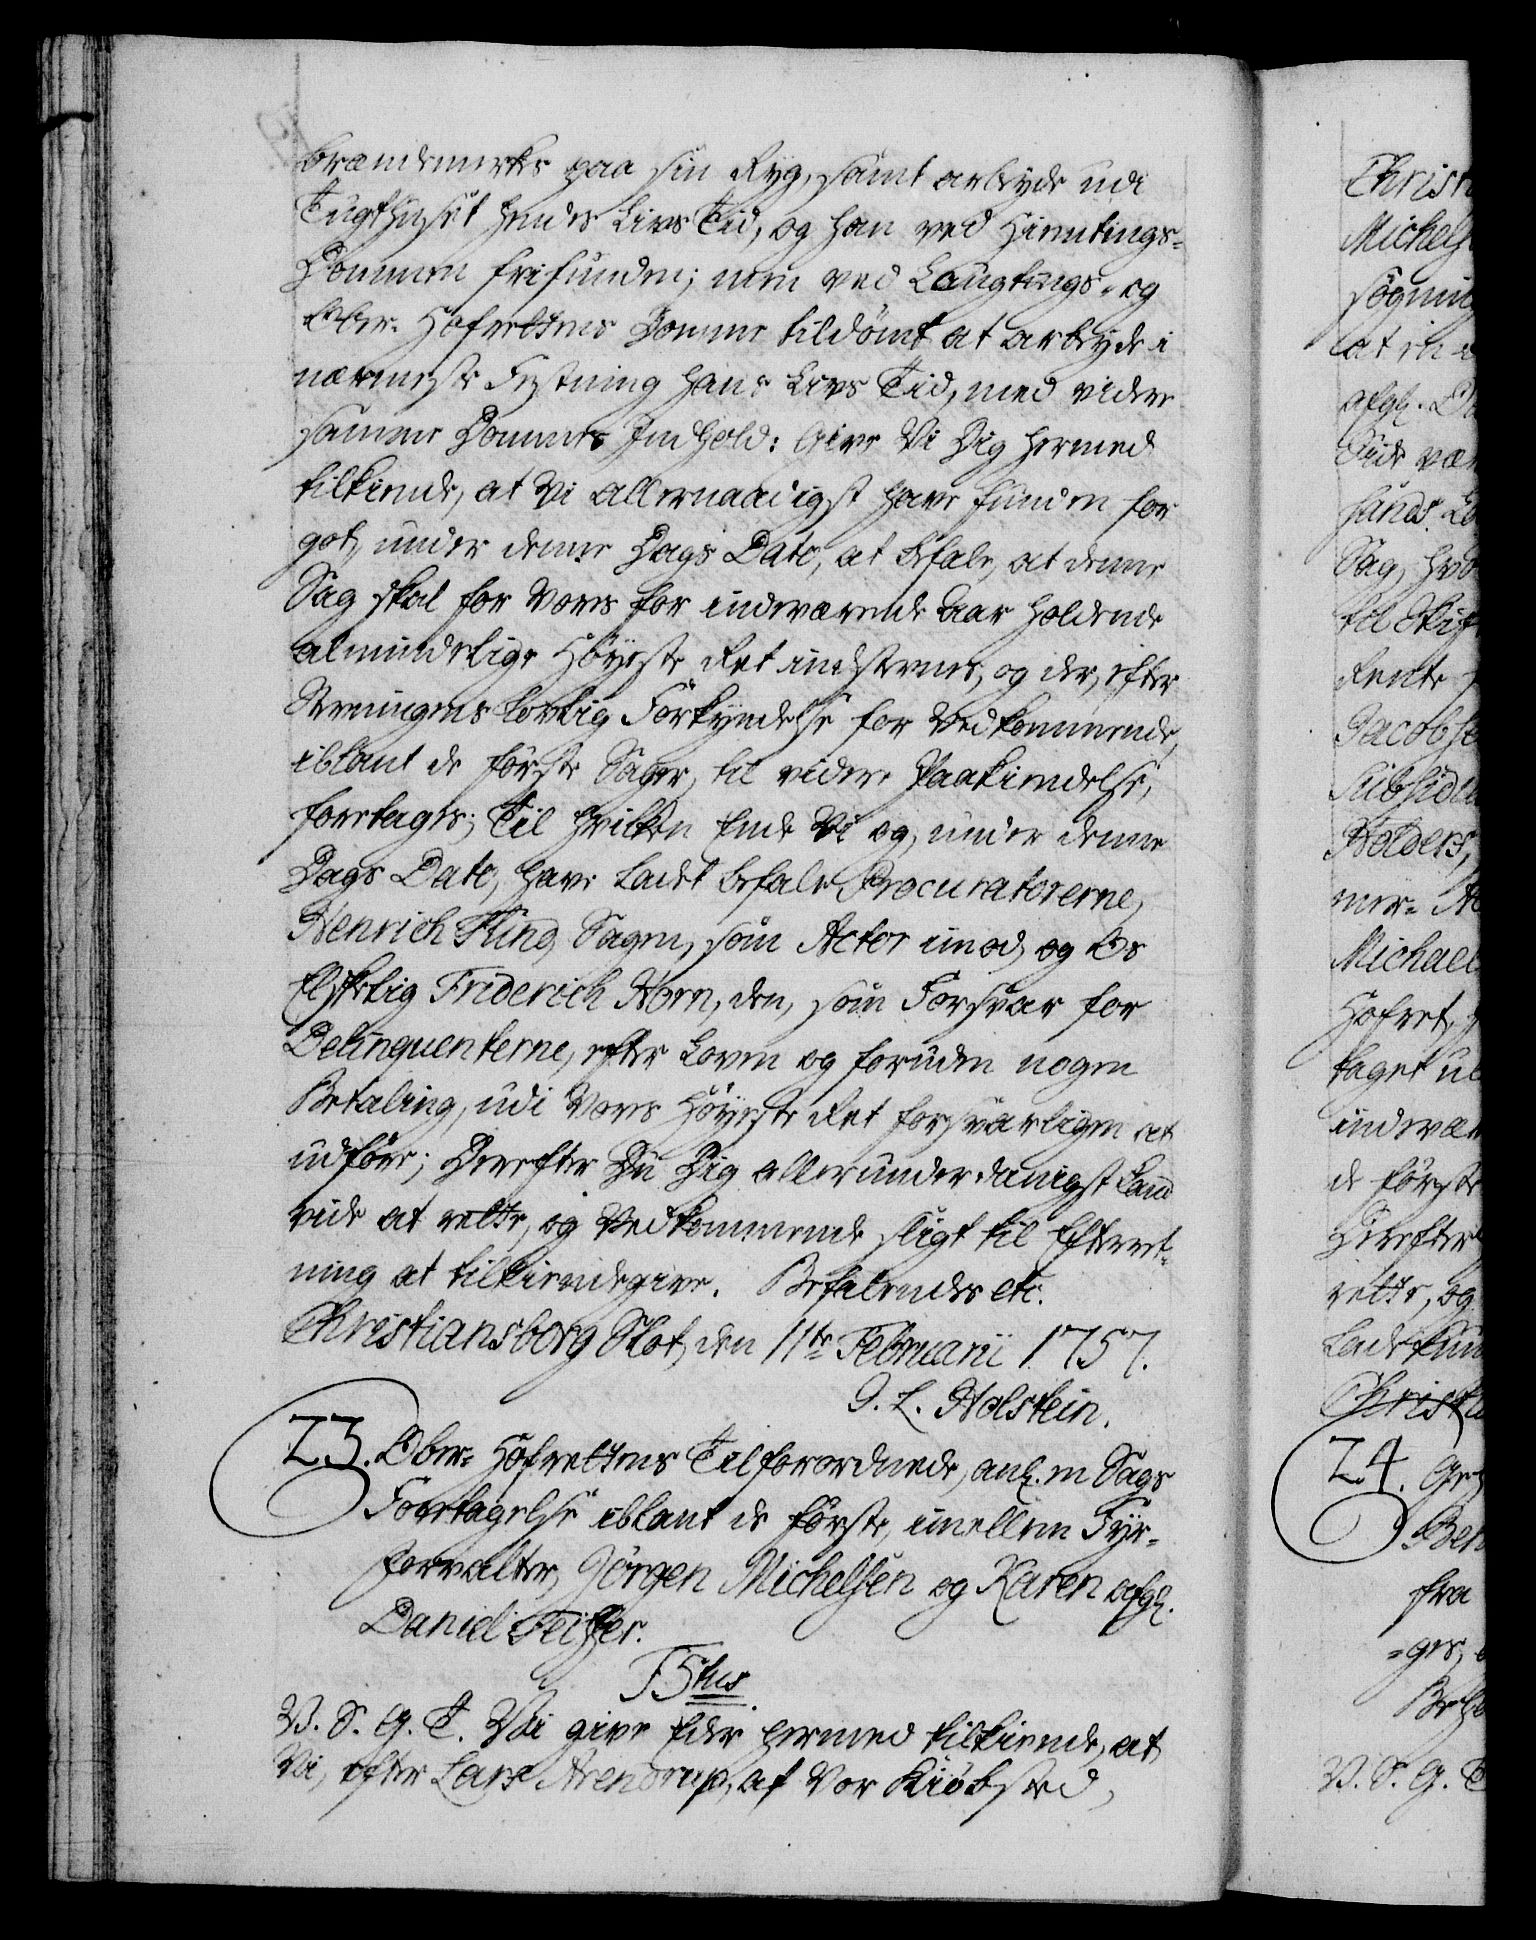 brændemerkes paa sin Ryg, samt arbeyde udi
Tugthuset hendes Livs Tid, og han ved Hiemtings-
Dommen frifunden; men ved Laugtings- og
Ober-Hofrettens Domme tildømt at arbeyde i
nærmeste Festning hans Livs Tid, med videre
samme Dommes Indhold: Give Vi Dig hermed
tilkiende, at Vi allernaadigst have funden for
got, under denne Dags Dato, at befale, at denne
Sag skal for Vores for indeværende Aar holdende
almindelige Høyeste Ret indstevnes, og der, efter
Stevningens lovlig Forkyndelse for Vedkommende,
iblant de første Sager, til videre Paakiendelse,
foretages; Til hvilken Ende Vi og, under denne
Dags Dato, have ladet befale Procuratorerne,
Henrich Fling Sagen, som Actor imod, og Os
Elskelig Friderich Horn, den, som Forsvar for
Delinquenterne, efter Loven og foruden nogen
Betaling, udi Vores Høyeste Ret forsvarligen at
udføre; Derefter Du Dig allerunderdanigst kand
vide at rette, og Vedkommende sligt til Efterret-
ning at tilkiendegive. Befalendes etc.
Christiansborg Slot, den 11te Februarii 1757.
J. L. Holstein.
23. Ober-Hofrettens Tilforordnede, anl. en Sags
Foretagelse iblant de første, imellem Fyr-
forvalter, Jörgen Michelsen og Karen afgl.
Daniel Feiffer.
F5tus
V. S. G. T. Vi give Eder hermed tilkiende, at
Vi, efter Lars Arendrup, af Vor Kiøbsted,
Christi
Michels
søgning
at en
afgl.
Tide vær
Sag, hvo
til Skif
Rente
Jacobse
Subsidia
Holders,
mer-
Michael
Hofret,
taget ud
indevær
de første
Derefter
rette, og
Lade
Christia
24.
Ber
fra
-ges,
V. S. G. T